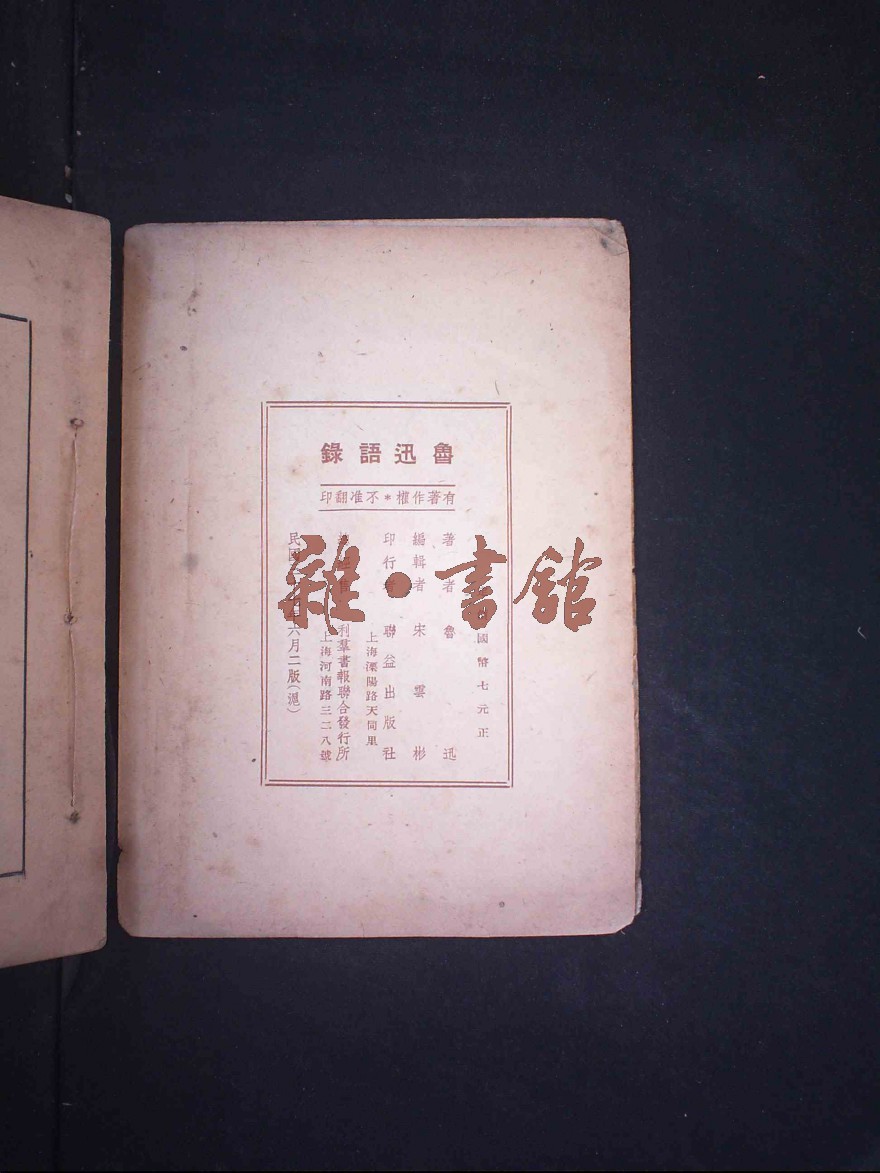 魯迅語錄
有著作權＊不准翻印
國幣七元正
著者魯迅
編輯者宋雲彬
印行 聯益出版社
上海溧陽路天同里
利羣書報聯合發行所
上海河南路三二八號
民國 年六月二版(滬)
雜·書館